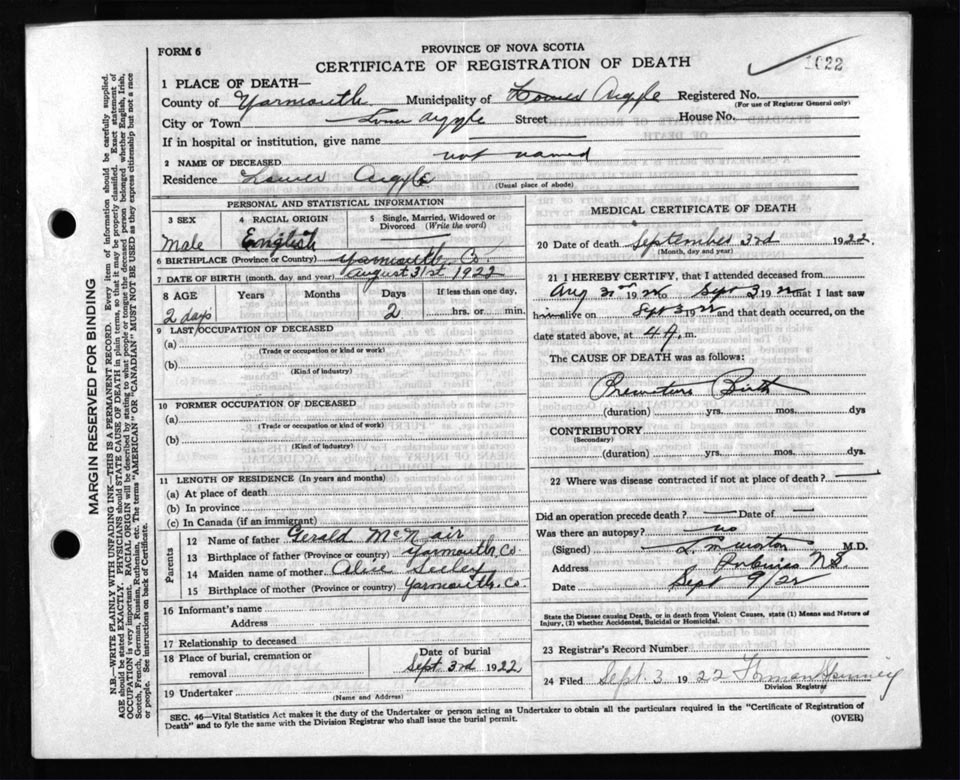 FORM 6
PROVINCE OF NOVA SCOTIA
CERTIFICATE OF REGISTRATION OF DEATH
1022
1 PLACE OF DEATH—
County of Yarmouth Municipality of Lower Argyle Registered No.
(For use of Registrar General only)
City or Town Lower Argyle Street House No.
If in hospital or institution, give name
2 NAME OF DECEASED not named
Residence Lower Argyle
(Usual place of abode)
PERSONAL AND STATISTICAL INFORMATION
3 SEX
Male
4 RACIAL ORIGIN
English
5 Single, Married, Widowed or Divorced (Write the word)
6 BIRTHPLACE (Province or Country) Yarmouth Co.
7 DATE OF BIRTH (month, day and year) August 31st 1922
8 AGE Years Months Days If less than one day,
2 days 2 hrs. or min.
9 LAST OCCUPATION OF DECEASED
(a)
(Trade or occupation or kind or work)
(b)
(Kind of industry)
10 FORMER OCCUPATION OF DECEASED
(a)
(Trade or occupation or kind or work)
(b)
(Kind of industry)
11 LENGTH OF RESIDENCE (In years and months)
(a) At place of death
(b) In province
(c) In Canada (if an immigrant)
Parents
12 Name of father Gerald McNair
13 Birthplace of father (Province or country) Yarmouth Co.
14 Maiden name of mother Alice Seeley
15 Birthplace of mother (Province or country) Yarmouth Co.
16 Informant's name
Address
17 Relationship to deceased
18 Place of burial, cremation or removal
Date of burial
Sept 3rd 1922
19 Undertaker
(Name and Address)
MEDICAL CERTIFICATE OF DEATH
20 Date of death September 3rd 1922.
(Month, day and year)
21 I HEREBY CERTIFY, that I attended deceased from
Aug 1922 to Sept 3 1922 that I last saw
him alive on Sept 3 1922 and that death occurred, on the
date stated above, at 4 A. m.
The CAUSE OF DEATH was as follows:
Premature Birth
(duration) yrs. mos. dys
CONTRIBUTORY
(Secondary)
(duration) yrs. mos. dys.
22 Where was disease contracted if not at place of death?
Did an operation precede death — Date of —
Was there an autopsy? no
(Signed) M.D.
Address N.S.
Date Sept 9/22
State the Disease causing Death, or in death from Violent Causes, state (1) Means and Nature of
Injury, (2) whether Accidental, Suicidal or Homicidal.
23 Registrar's Record Number
24 Filed Sept. 3 1922
Division Registrar
SEC. 46—Vital Statistics Act makes it the duty of the Undertaker or person acting as Undertaker to obtain all the particulars required in the "Certificate of Registration of
Death" and to fyle the same with the Division Registrar who shall issue the burial permit.
(OVER)
MARGIN RESERVED FOR BINDING
N.B.—WRITE PLAINLY WITH UNFADING INK—THIS IS A PERMANENT RECORD. Every item of information should be carefully supplied.
AGE should be stated EXACTLY. PHYSICIANS should STATE CAUSE OF DEATH in plain terms, so that it may be properly classified. Exact statement of
OCCUPATION is very important. RACIAL ORIGIN will be described by stating to what people or tongue the deceased person belonged whether English, Irish,
Scotch, French, German, Russian, Ruthenian, etc. The terms "AMERICAN" OR "CANADIAN" MUST NOT BE USED as they express citizenship but not a race
or people. See instructions on back of Certificate.